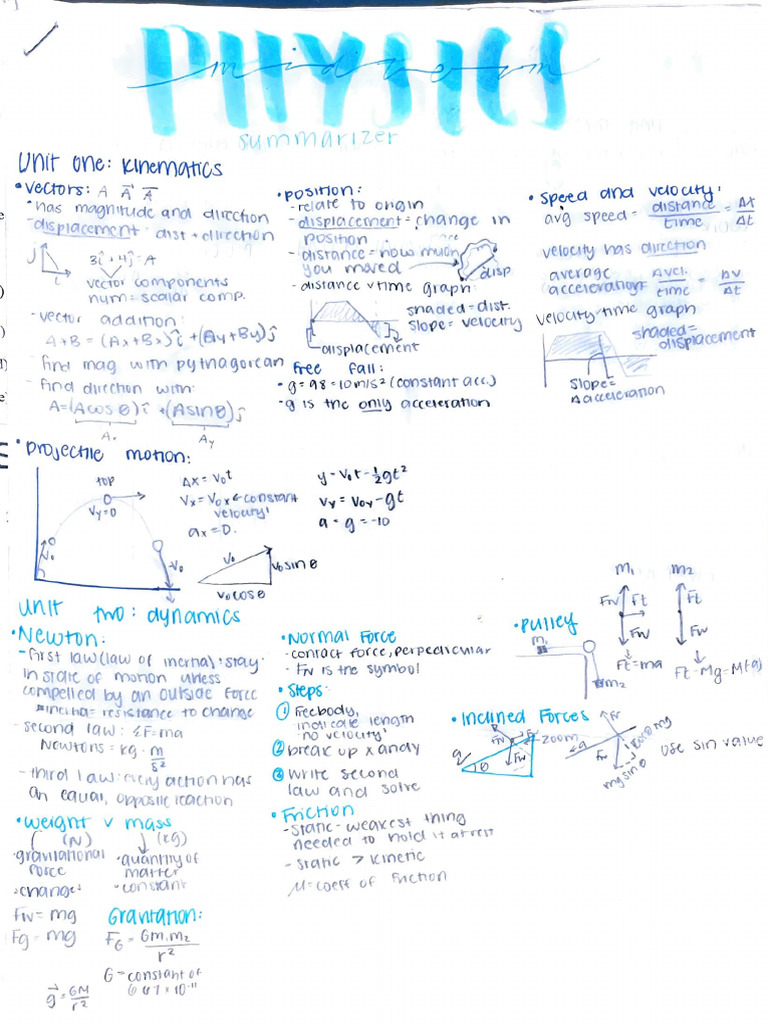 PHYSICS
midterm
summarizer
Unit one: Kinematics
• Vectors: A A⃗ A̅
• has magnitude and direction
- displacement = dist + direction
j
i
3î + 4ĵ = A
vector components
num = scalar comp.
- vector addition:
A+B = (Ax+Bx)î + (Ay+By)ĵ
- find mag with pythagorean
- find direction with:
A=(Acosθ)î + (Asinθ)ĵ
Ax
Ay
• Position:
- relate to origin
- displacement = change in
position
- distance = how much
you moved
disp
- distance v time graph:
shaded = dist.
slope = velocity
displacement
Free fall:
• g = 9.8 = 10 m/s² (constant acc.)
- g is the only acceleration
• Speed and velocity:
avg speed = distance/time = Δx/Δt
velocity has direction
average
acceleration = Δvel./time = Δv/Δt
velocity-time graph
shaded =
displacement
slope =
acceleration
• Projectile motion:
top
Vy=0
V₀
-V₀
Δx = V₀t
Vx = V₀x ← constant
velocity!
ax = 0.
y = V₀t - ½gt²
Vy = V₀y - gt
a = g = -10
V₀
V₀ sin θ
V₀ cos θ
Unit two: dynamics
• Newton:
- first law (law of inertia): stay
in state of motion unless
compelled by an outside force
inertia = resistance to change
- second law: ΣF=ma
Newtons = kg · m/s²
- third law: every action has
an equal, opposite reaction
• Weight v mass
(N) (kg)
• gravitational
force
• quantity of
matter
• changes
- constant
Fw = mg
Fg = mg
Gravitation:
FG = Gm₁m₂/r²
G = constant of
6.67 x 10⁻¹¹
g⃗ = GM/r²
• Normal Force
- contact force, perpedicular
- FN is the symbol
• Steps:
① Freebody,
indicate length
"no velocity"
② break up x and y
③ write second
law and solve
• Friction
- static - weakest thing
needed to hold it at rest
- static > kinetic
μ = coeff of friction
• Pulley
m₁
m₂
m₁
FN
Ft
Fw
Ft = ma
m₂
Ft
Fw
Ft - Mg = M(a)
• Inclined Forces
FN
Fw
θ
zoom
FN
Fw
mg sin θ
use sin value